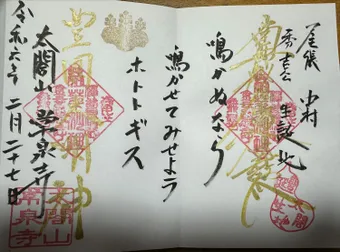 尾張 中村
秀吉公 生誕地
鳴かぬなら
鳴かせてみせよう
ホトトギス
豊國大明神
太閤山 常泉寺
令和六年 二月二十七日
太閤山
常泉寺